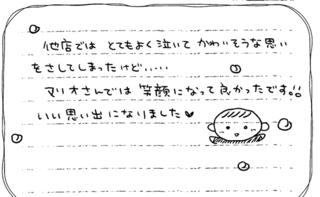 他店では とてもよく泣いて かわいそうな思い
をさしてしまったけど.....
マリオさんでは 笑顔になって良かったです!!
いい思い出になりました♥